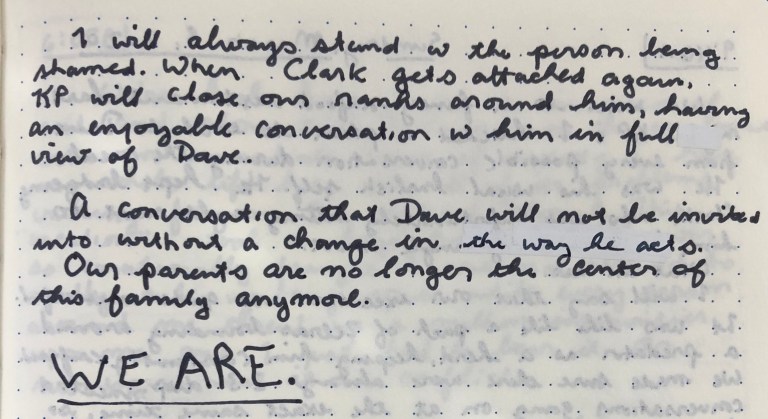 I will always stand w the person being
shamed. When Clark gets attacked again,
KP will close our ranks around him, having
an enjoyable conversation w him in full
view of Dave.
A conversation that Dave will not be invited
into without a change in the way he acts.
Our parents are no longer the center of
this family anymore.
WE ARE.